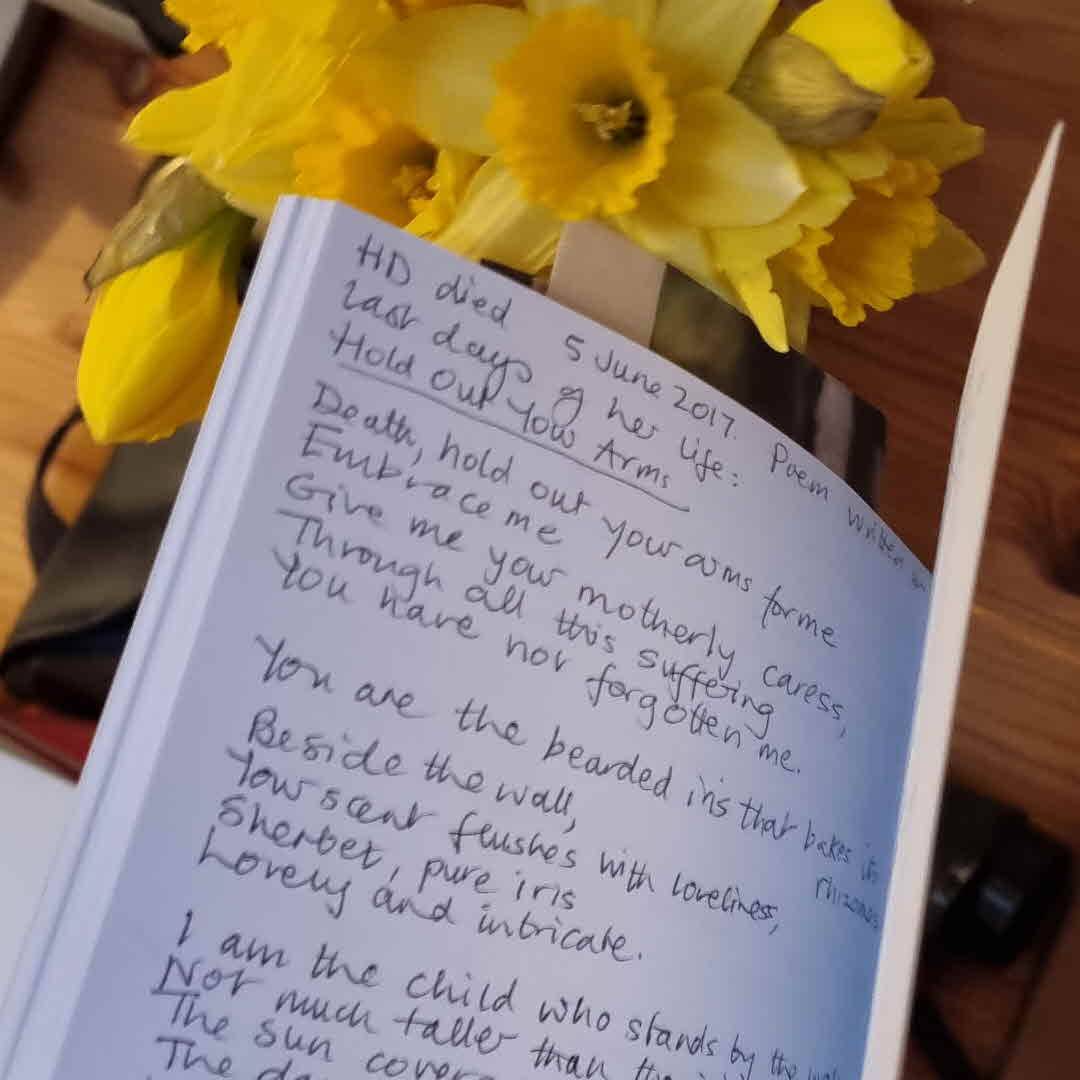 HD died 5 June 2017. Poem written in
last days of her life:
Hold Out Your Arms
Death, hold out your arms for me
Embrace me
Give me your motherly caress,
Through all this suffering
You have not forgotten me.
You are the bearded iris that bakes its
rhizomes
Beside the wall,
Your scent flushes with loveliness,
Sherbet, pure iris
Lovely and intricate.
I am the child who stands by the wall
Not much taller than the
The sun covers
The